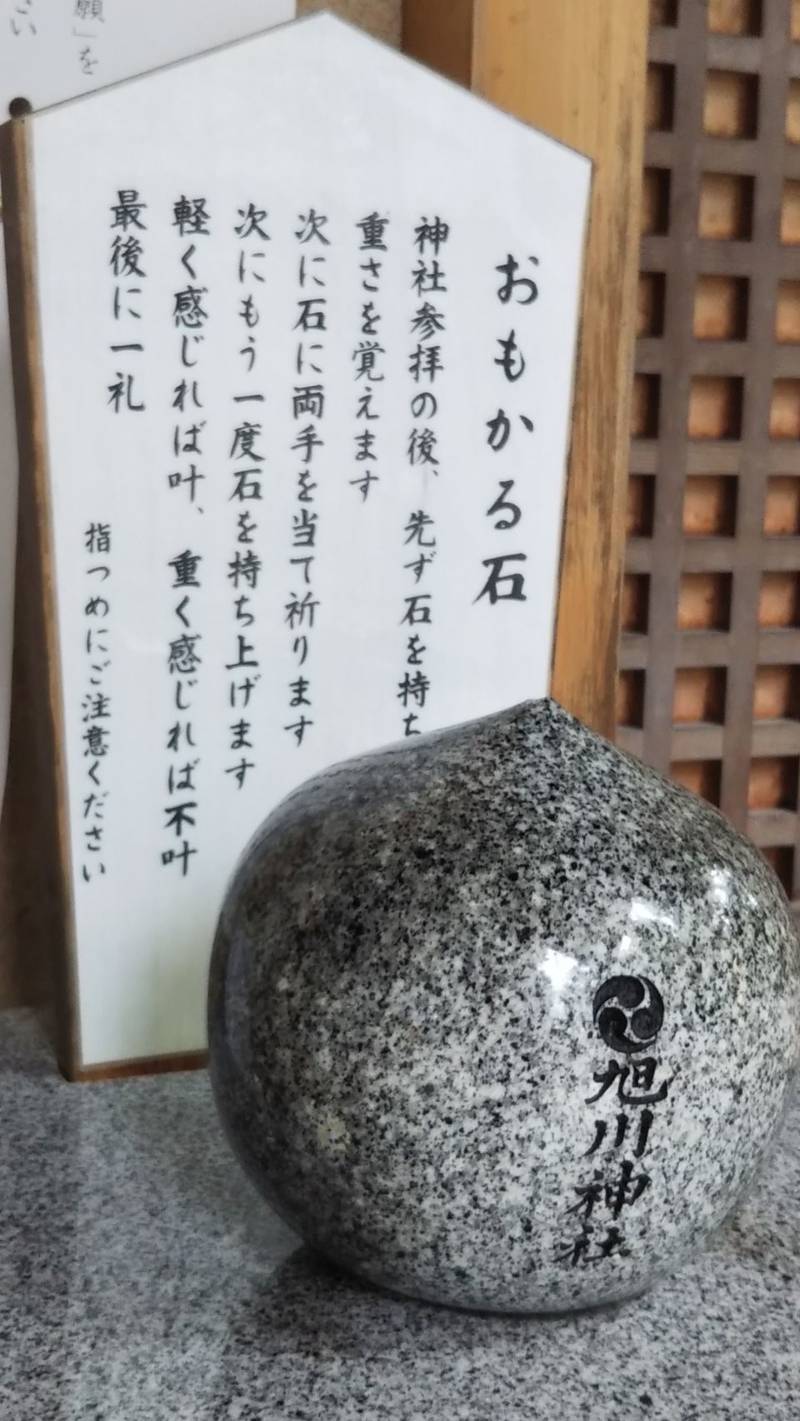 おもかる石
神社参拝の後、先ず石を持ち
重さを覚えます
次に石に両手を当て祈ります
次にもう一度石を持ち上げます
軽く感じれば叶、重く感じれば不叶
最後に一礼
指つめにご注意ください
願」を
さい
旭川神社